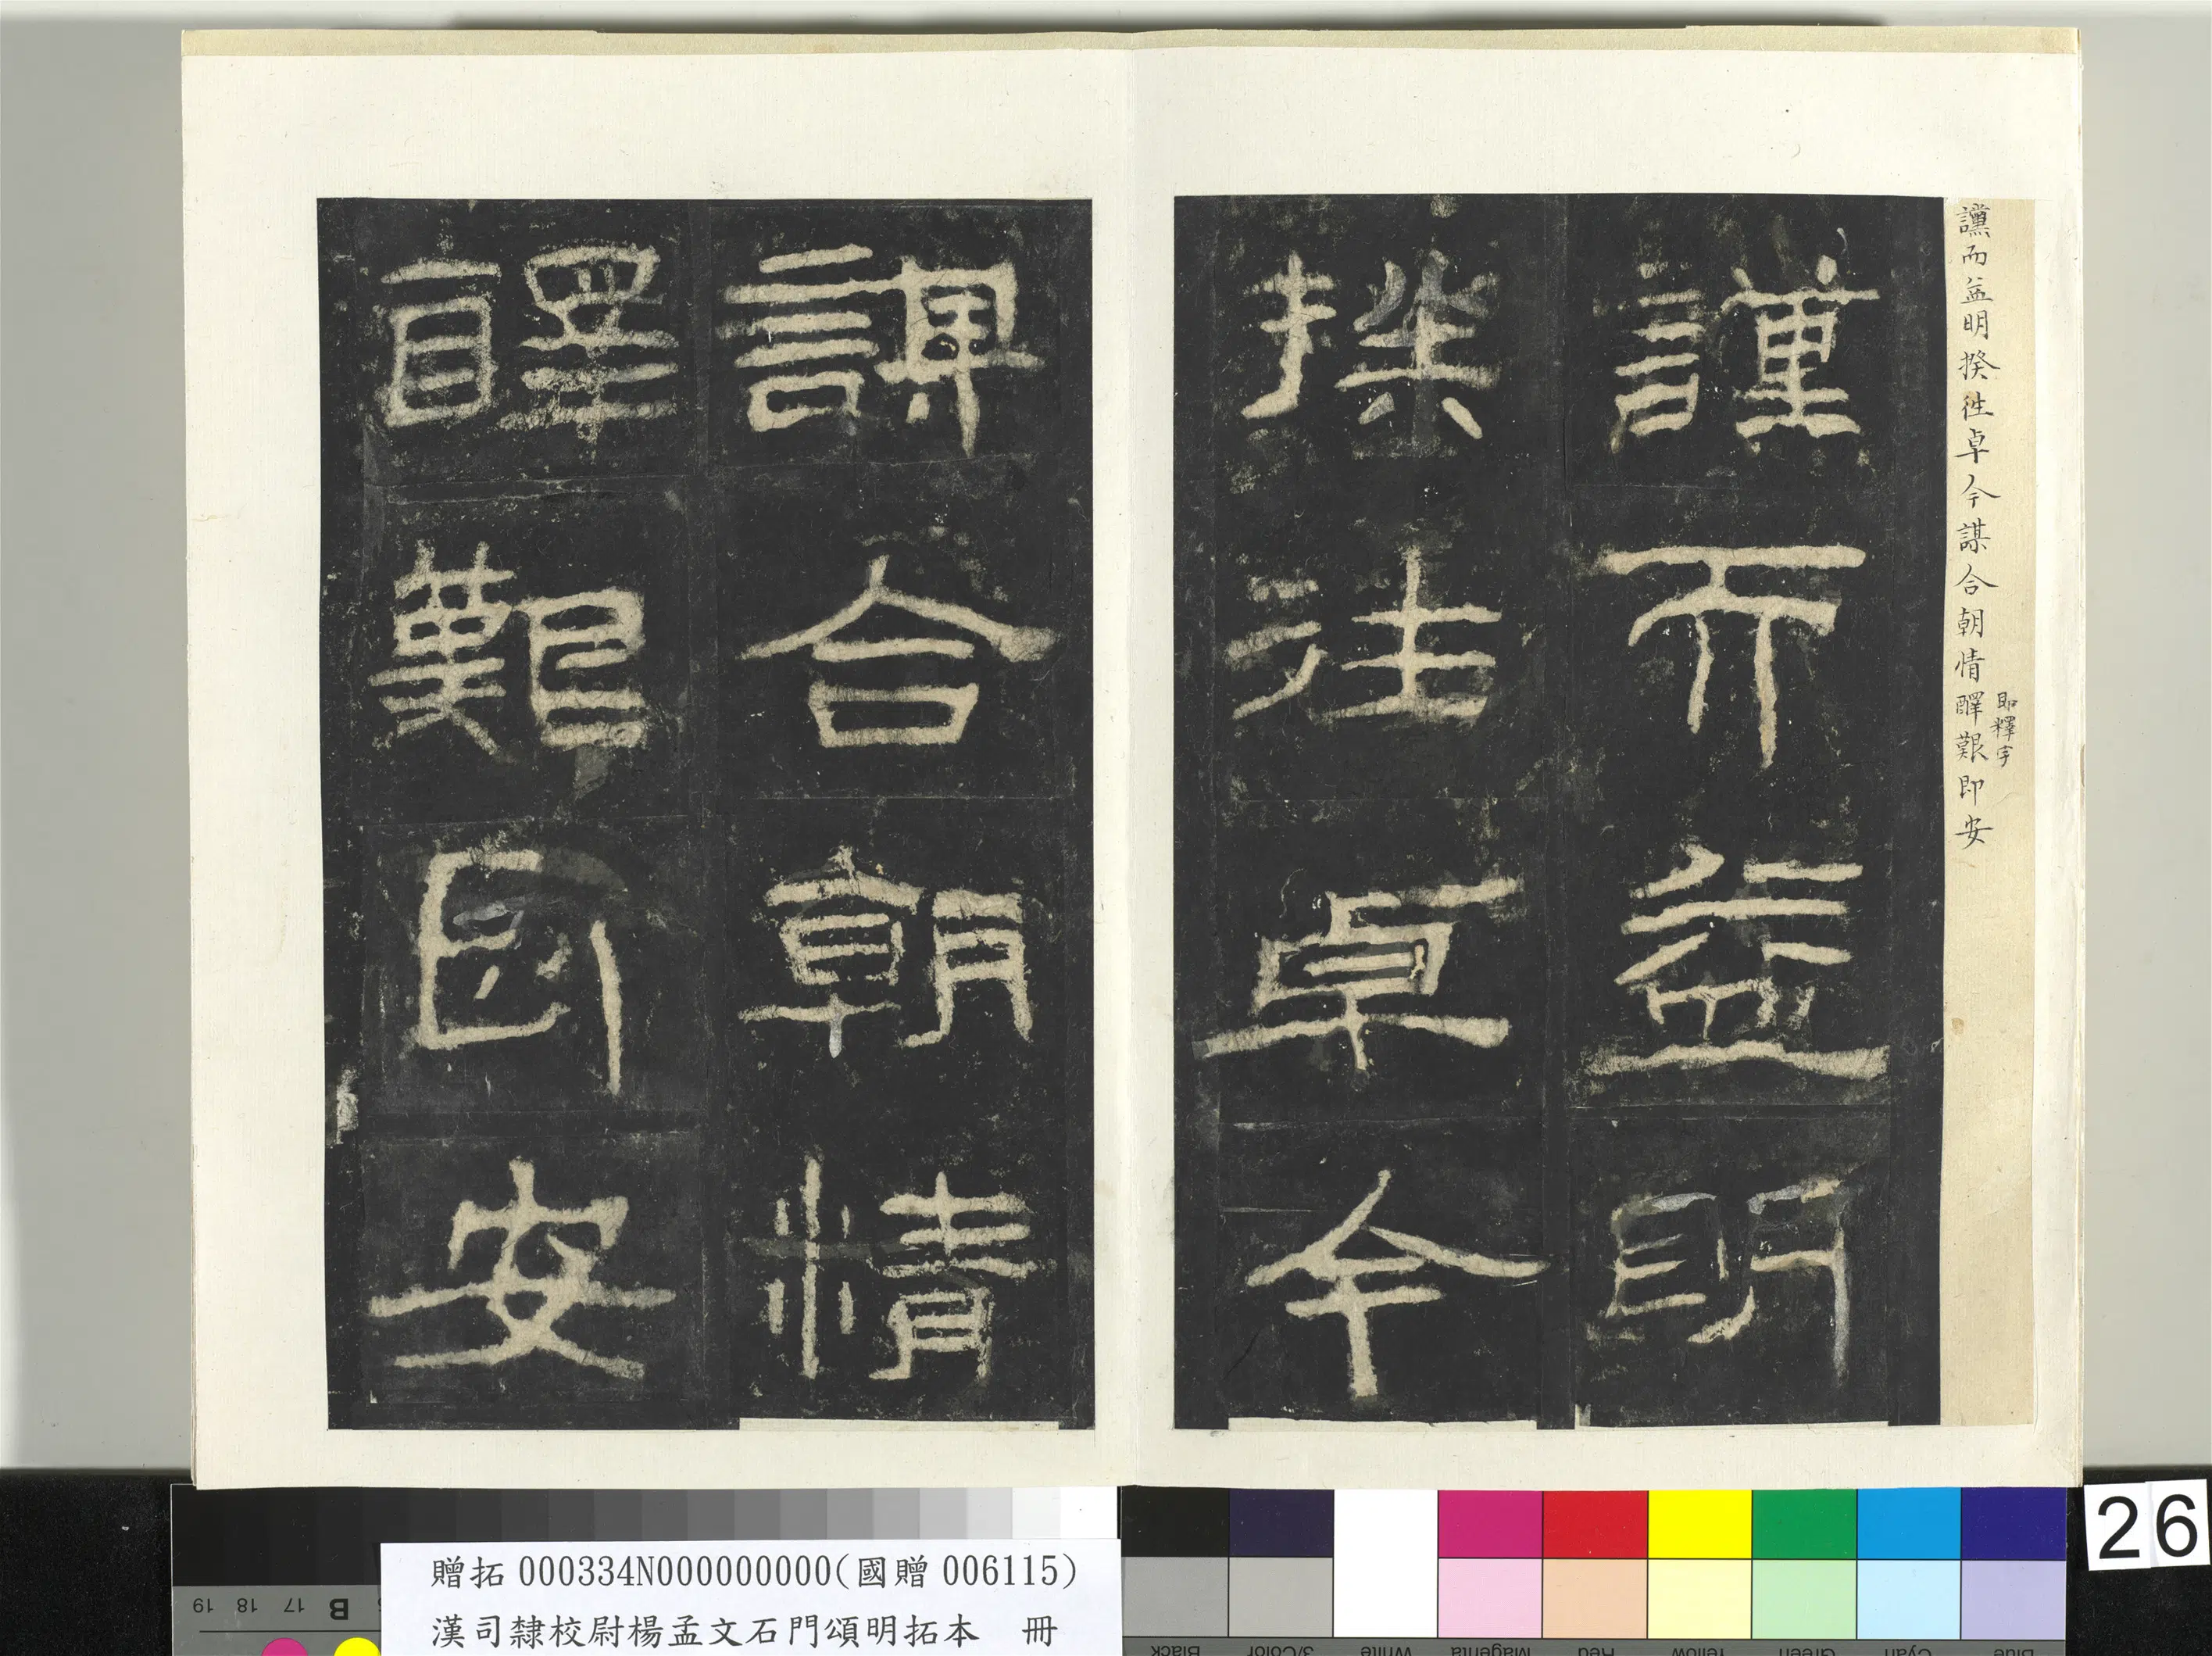 讜而益明揆往卓今謀合朝情醳艱即安
即釋字
讜而益明
揆往卓今
謀合朝情
醳艱即安
26
贈拓 000334N000000000(國贈 006115)
漢司隸校尉楊孟文石門頌明拓本 冊
19 18 17 B
Black 3/Color White Magenta Red Yellow Green Cyan Blue